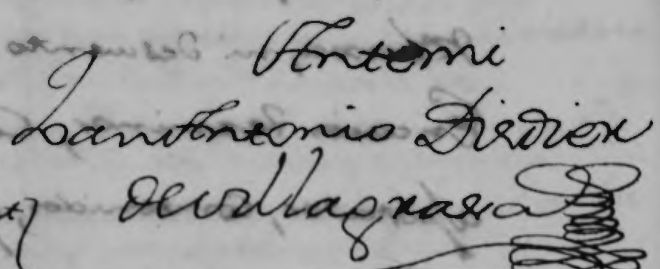 Antemi
Juan Antonio Disdier
de Villagrasa